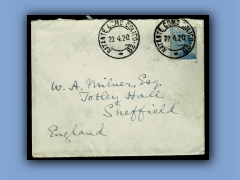 22.4.20
22.4.20
W. A. Milner, Esq.
Totley Hall
Sheffield
England